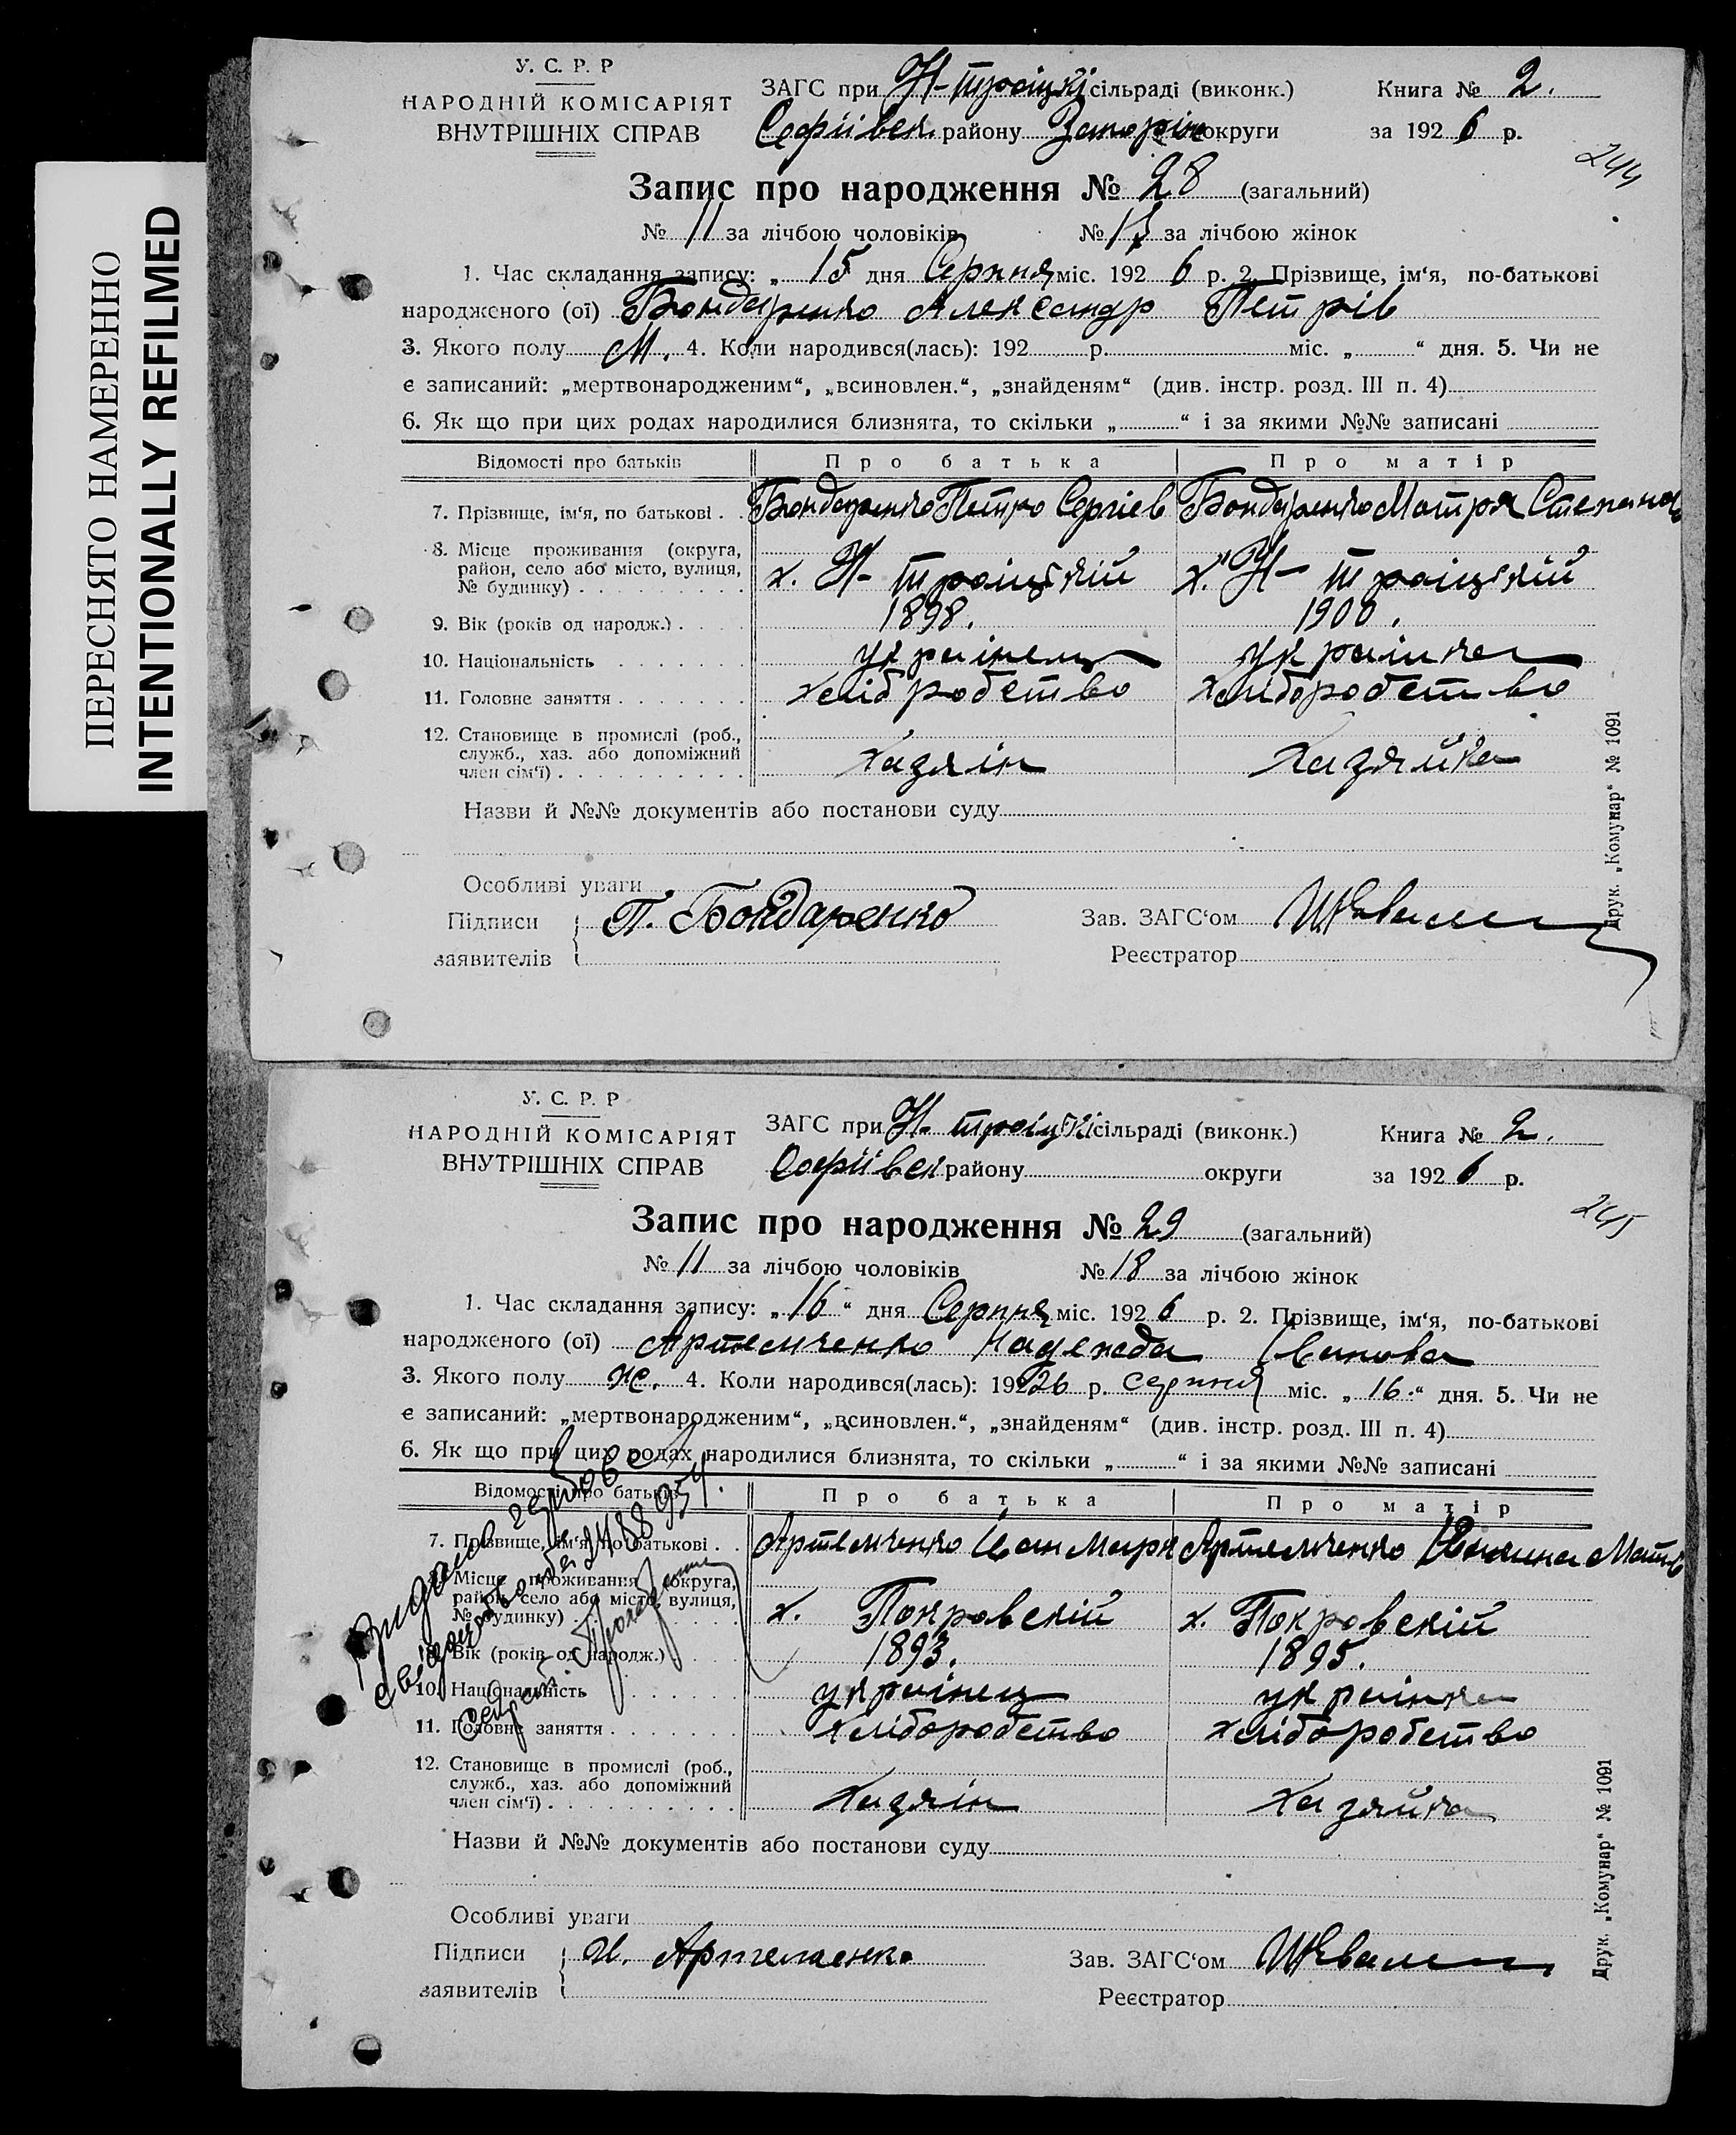 ПЕРЕСНЯТО НАМЕРЕННО
INTENTIONALLY REFILMED
У. С. Р. Р
НАРОДНІЙ КОМІСАРІЯТ
ВНУТРІШНІХ СПРАВ
ЗАГС при Н-троіцкі сільраді (виконк.)
Книга № 2.
Софіївск. району Запоріж округи
за 1926 р.
244
Запис про народження № 28 (загальний)
№ 11 за лічбою чоловіків № 17 за лічбою жінок
1. Час складання запису: „ 15 дня Серпня міс. 1926 р. 2. Прізвище, ім‘я, по-батькові
народженого (ої) Бондаренко Александр Петрів
3. Якого полу М. 4. Коли народився(лась): 192 р. міс. „ “ дня. 5. Чи не
є записаний: „мертвонародженим“, „всиновлен.“, „знайденям“ (див. інстр. розд. III п. 4)
6. Як що при цих родах народилися близнята, то скільки „ “ і за якими №№ записані
Відомості про батьків Про батька Про матір
7. Прізвище, ім‘я, по батькові . . Бондаренко Петро Сергіев Бондаренко Мотря Степанов
8. Місце проживання (округа,
район, село або місто, вулиця,
№ будинку) . . . . . . . . . х. Н-троіцькій х. Н-троіцькій
9. Вік (років од народж.) . . . . 1898. 1900.
10. Національність . . . . . . . українець українка
11. Головне заняття . . . . . . . хліборобство хліборобство
12. Становище в промислі (роб.,
служб., хаз. або допоміжний
член сім‘ї) . . . . . . . . . . хазяін хазяйка
Назви й №№ документів або постанови суду
Особливі уваги
Підписи П. Бондаренко Зав. ЗАГС‘ом
заявителів Реєстратор
Друк. „Комунар“ № 1091
У. С. Р. Р
НАРОДНІЙ КОМІСАРІЯТ
ВНУТРІШНІХ СПРАВ
ЗАГС при Н-троіцкі сільраді (виконк.)
Книга № 2.
Софіївск району округи
за 1926 р.
245
Запис про народження № 29 (загальний)
№ 11 за лічбою чоловіків № 18 за лічбою жінок
1. Час складання запису: „ 16 “ дня Серпня міс. 1926 р. 2. Прізвище, ім‘я, по-батькові
народженого (ої) Артемченко Надежда Іванова
3. Якого полу ж. 4. Коли народився(лась): 1926 р. серпня міс. „ 16. “ дня. 5. Чи не
є записаний: „мертвонародженим“, „всиновлен.“, „знайденям“ (див. інстр. розд. III п. 4)
6. Як що при цих родах народилися близнята, то скільки „ “ і за якими №№ записані
Відомості про батьків Про батька Про матір
7. Прізвище, ім‘я, по батькові . . Артемченко Іван Марк Артемченко Мотв
8. Місце проживання (округа,
район, село або місто, вулиця,
№ будинку) х. Покровскій х. Покровскій
9. Вік (років од народж.) . 1893. 1895.
10. Національність . . . . . . українець українка
11. Головне заняття . . . . . . . хліборобство хліборобство
12. Становище в промислі (роб.,
служб., хаз. або допоміжний
член сім‘ї) . . . . . . . . . . хазяін хазяйка
Видано
Назви й №№ документів або постанови суду
Особливі уваги
Підписи И. Артемченко Зав. ЗАГС‘ом
заявителів Реєстратор
Друк. „Комунар“ № 1091